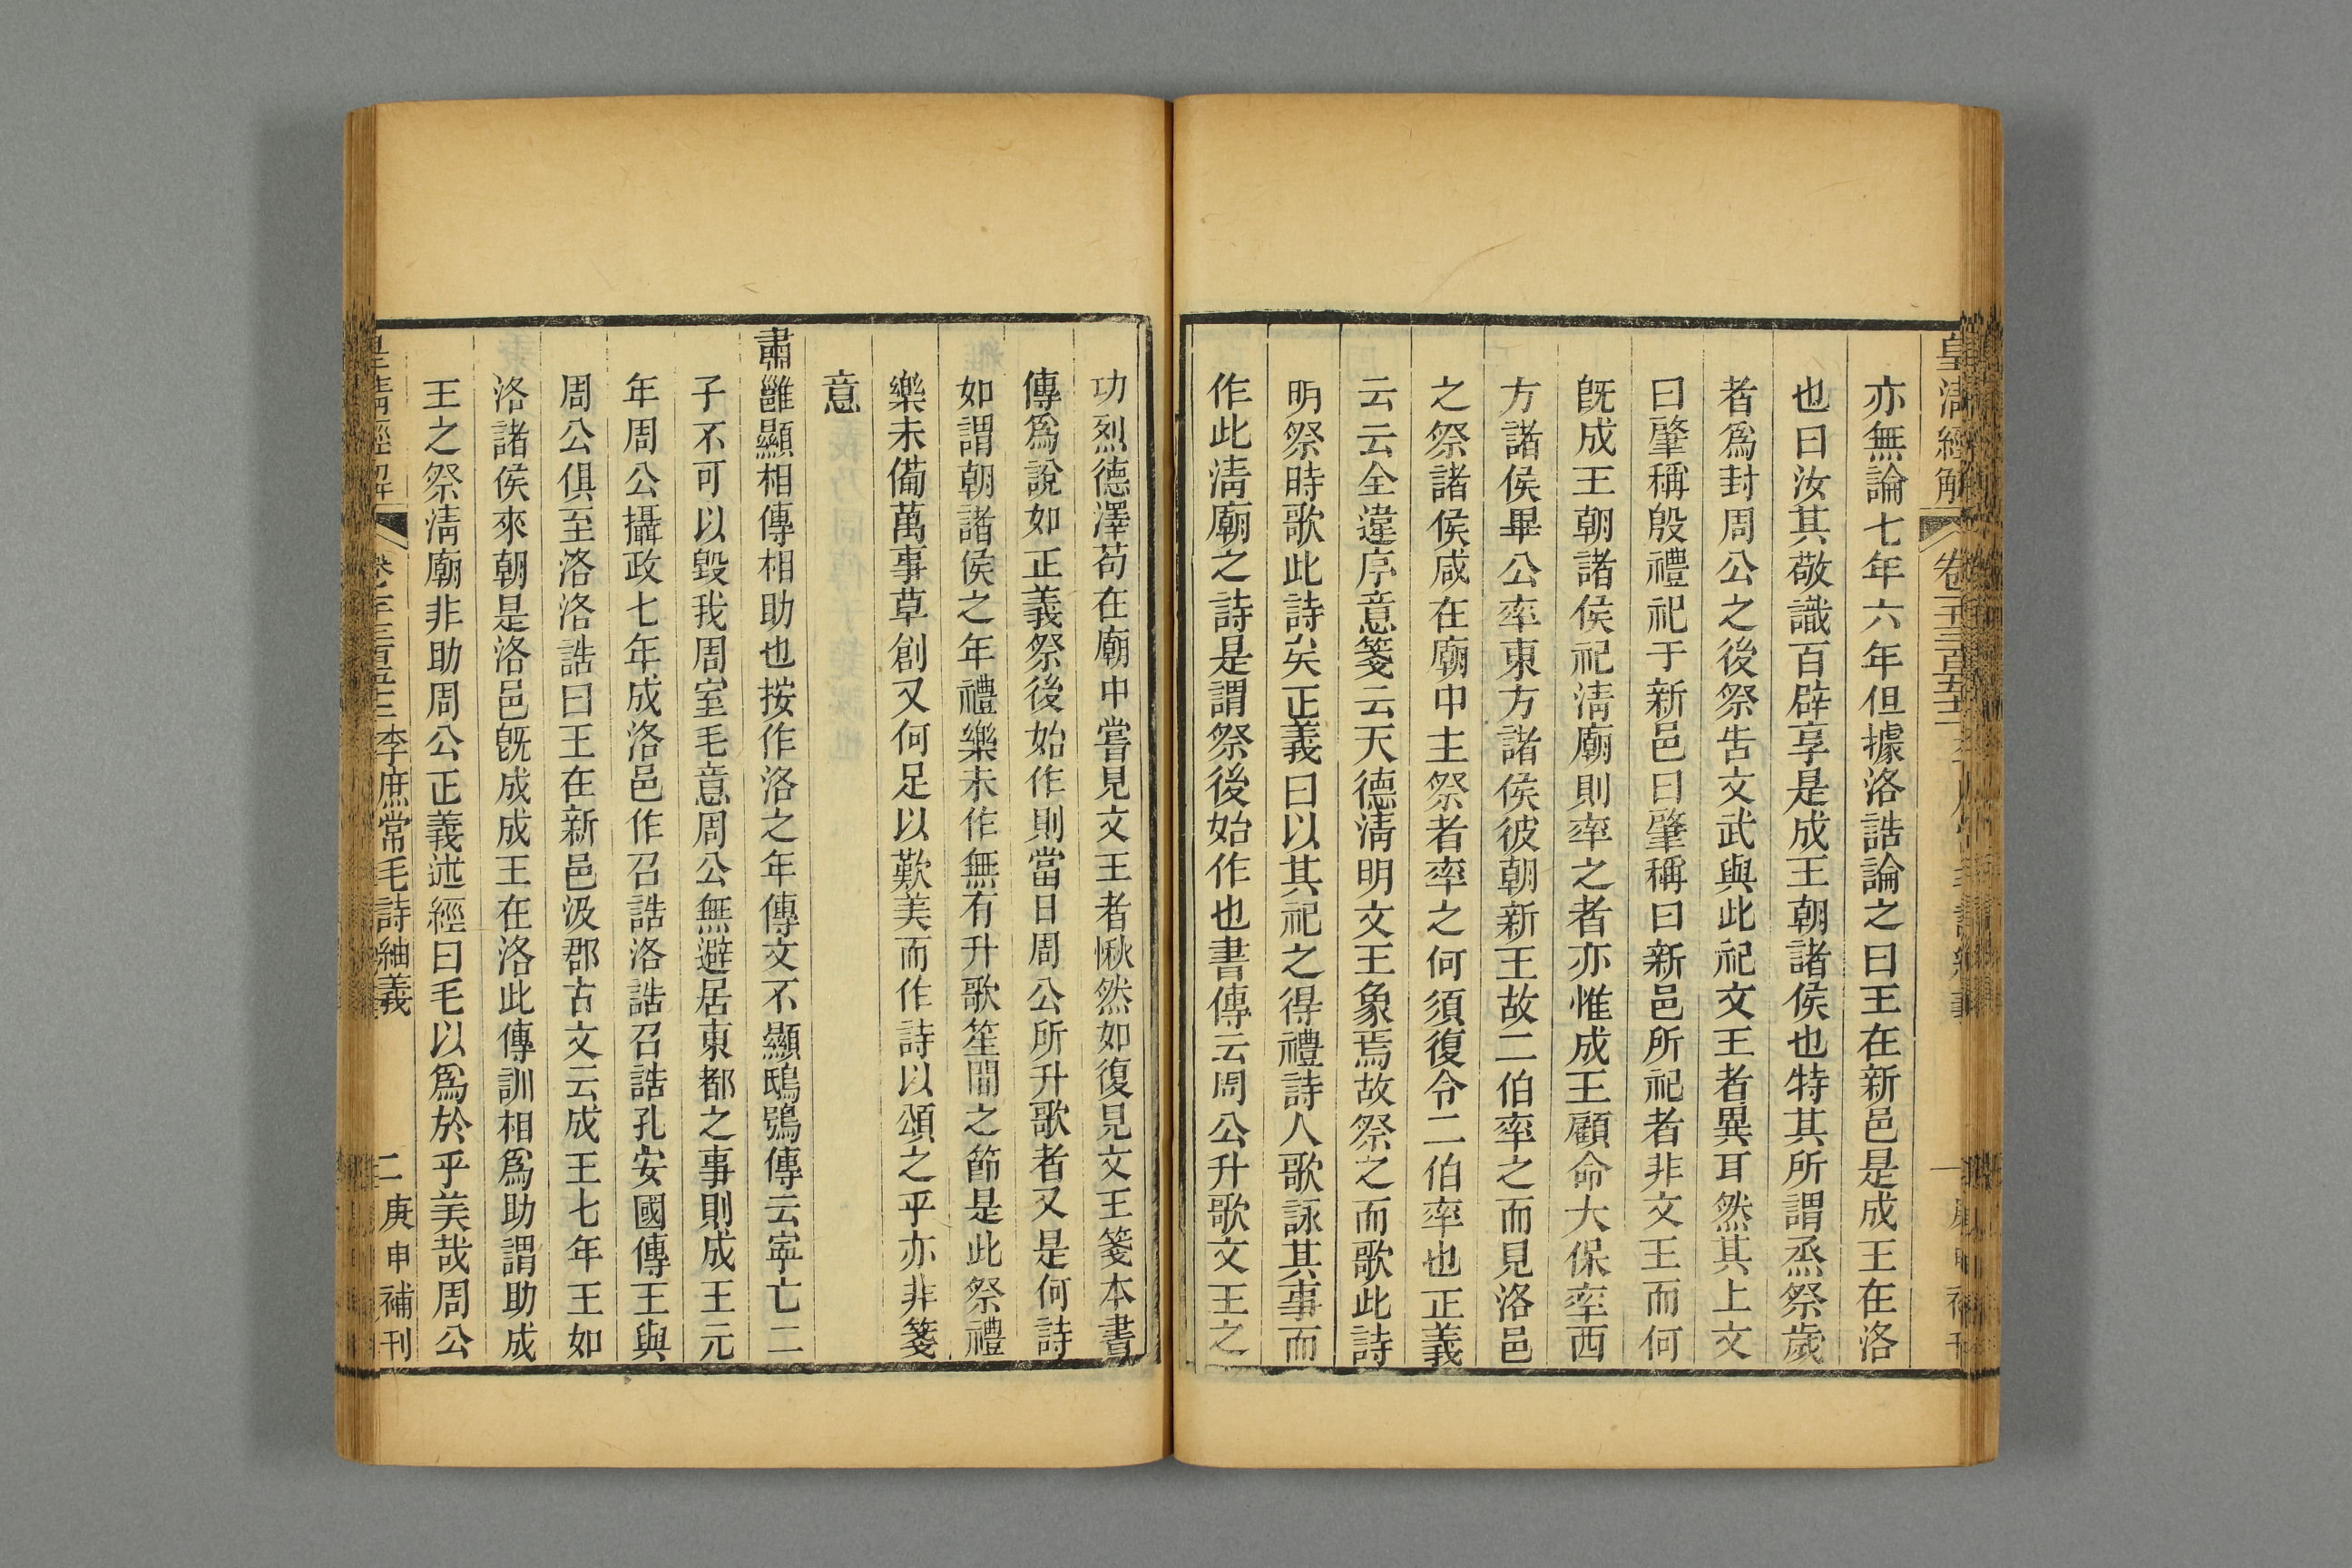 皇清經解
亦無論七年六年但據洛誥論之曰王在新邑是成王在洛
也曰汝其敬識百辟享是成王朝諸侯也特其所謂烝祭歲
者爲封周公之後祭告文武與此祀文王者異耳然其上文
曰肇稱殷禮祀于新邑曰肇稱曰新邑所祀者非文王而何
旣成王朝諸侯祀淸廟則率之者亦惟成王顧命大保率西
方諸侯畢公率東方諸侯彼朝新王故二伯率之而見洛邑
之祭諸侯咸在廟中主祭者率之何須復令二伯率也正義
云云全違序意箋云天德淸明文王象焉故祭之而歌此詩
明祭時歌此詩矣正義曰以其祀之得禮詩人歌詠其事而
作此淸廟之詩是謂祭後始作也書傳云周公升歌文王之
功烈德澤苟在廟中嘗見文王者愀然如復見文王箋本書
傳爲說如正義祭後始作則當日周公所升歌者又是何詩
如謂朝諸侯之年禮樂未作無有升歌笙閒之節是此祭禮
樂未備萬事草創又何足以歎美而作詩以頌之乎亦非箋
意
肅雝顯相傳相助也按作洛之年傳文不顯鴟鴞傳云寧亡二
子不可以毀我周室毛意周公無避居東都之事則成王元
年周公攝政七年成洛邑作召誥洛誥召誥孔安國傳王與
周公俱至洛洛誥曰王在新邑汲郡古文云成王七年王如
洛諸侯來朝是洛邑旣成成王在洛此傳訓相爲助謂助成
王之祭淸廟非助周公正義述經曰毛以爲於乎美哉周公
皇淸經解 李庶常毛詩紬義 二 庚申補刊